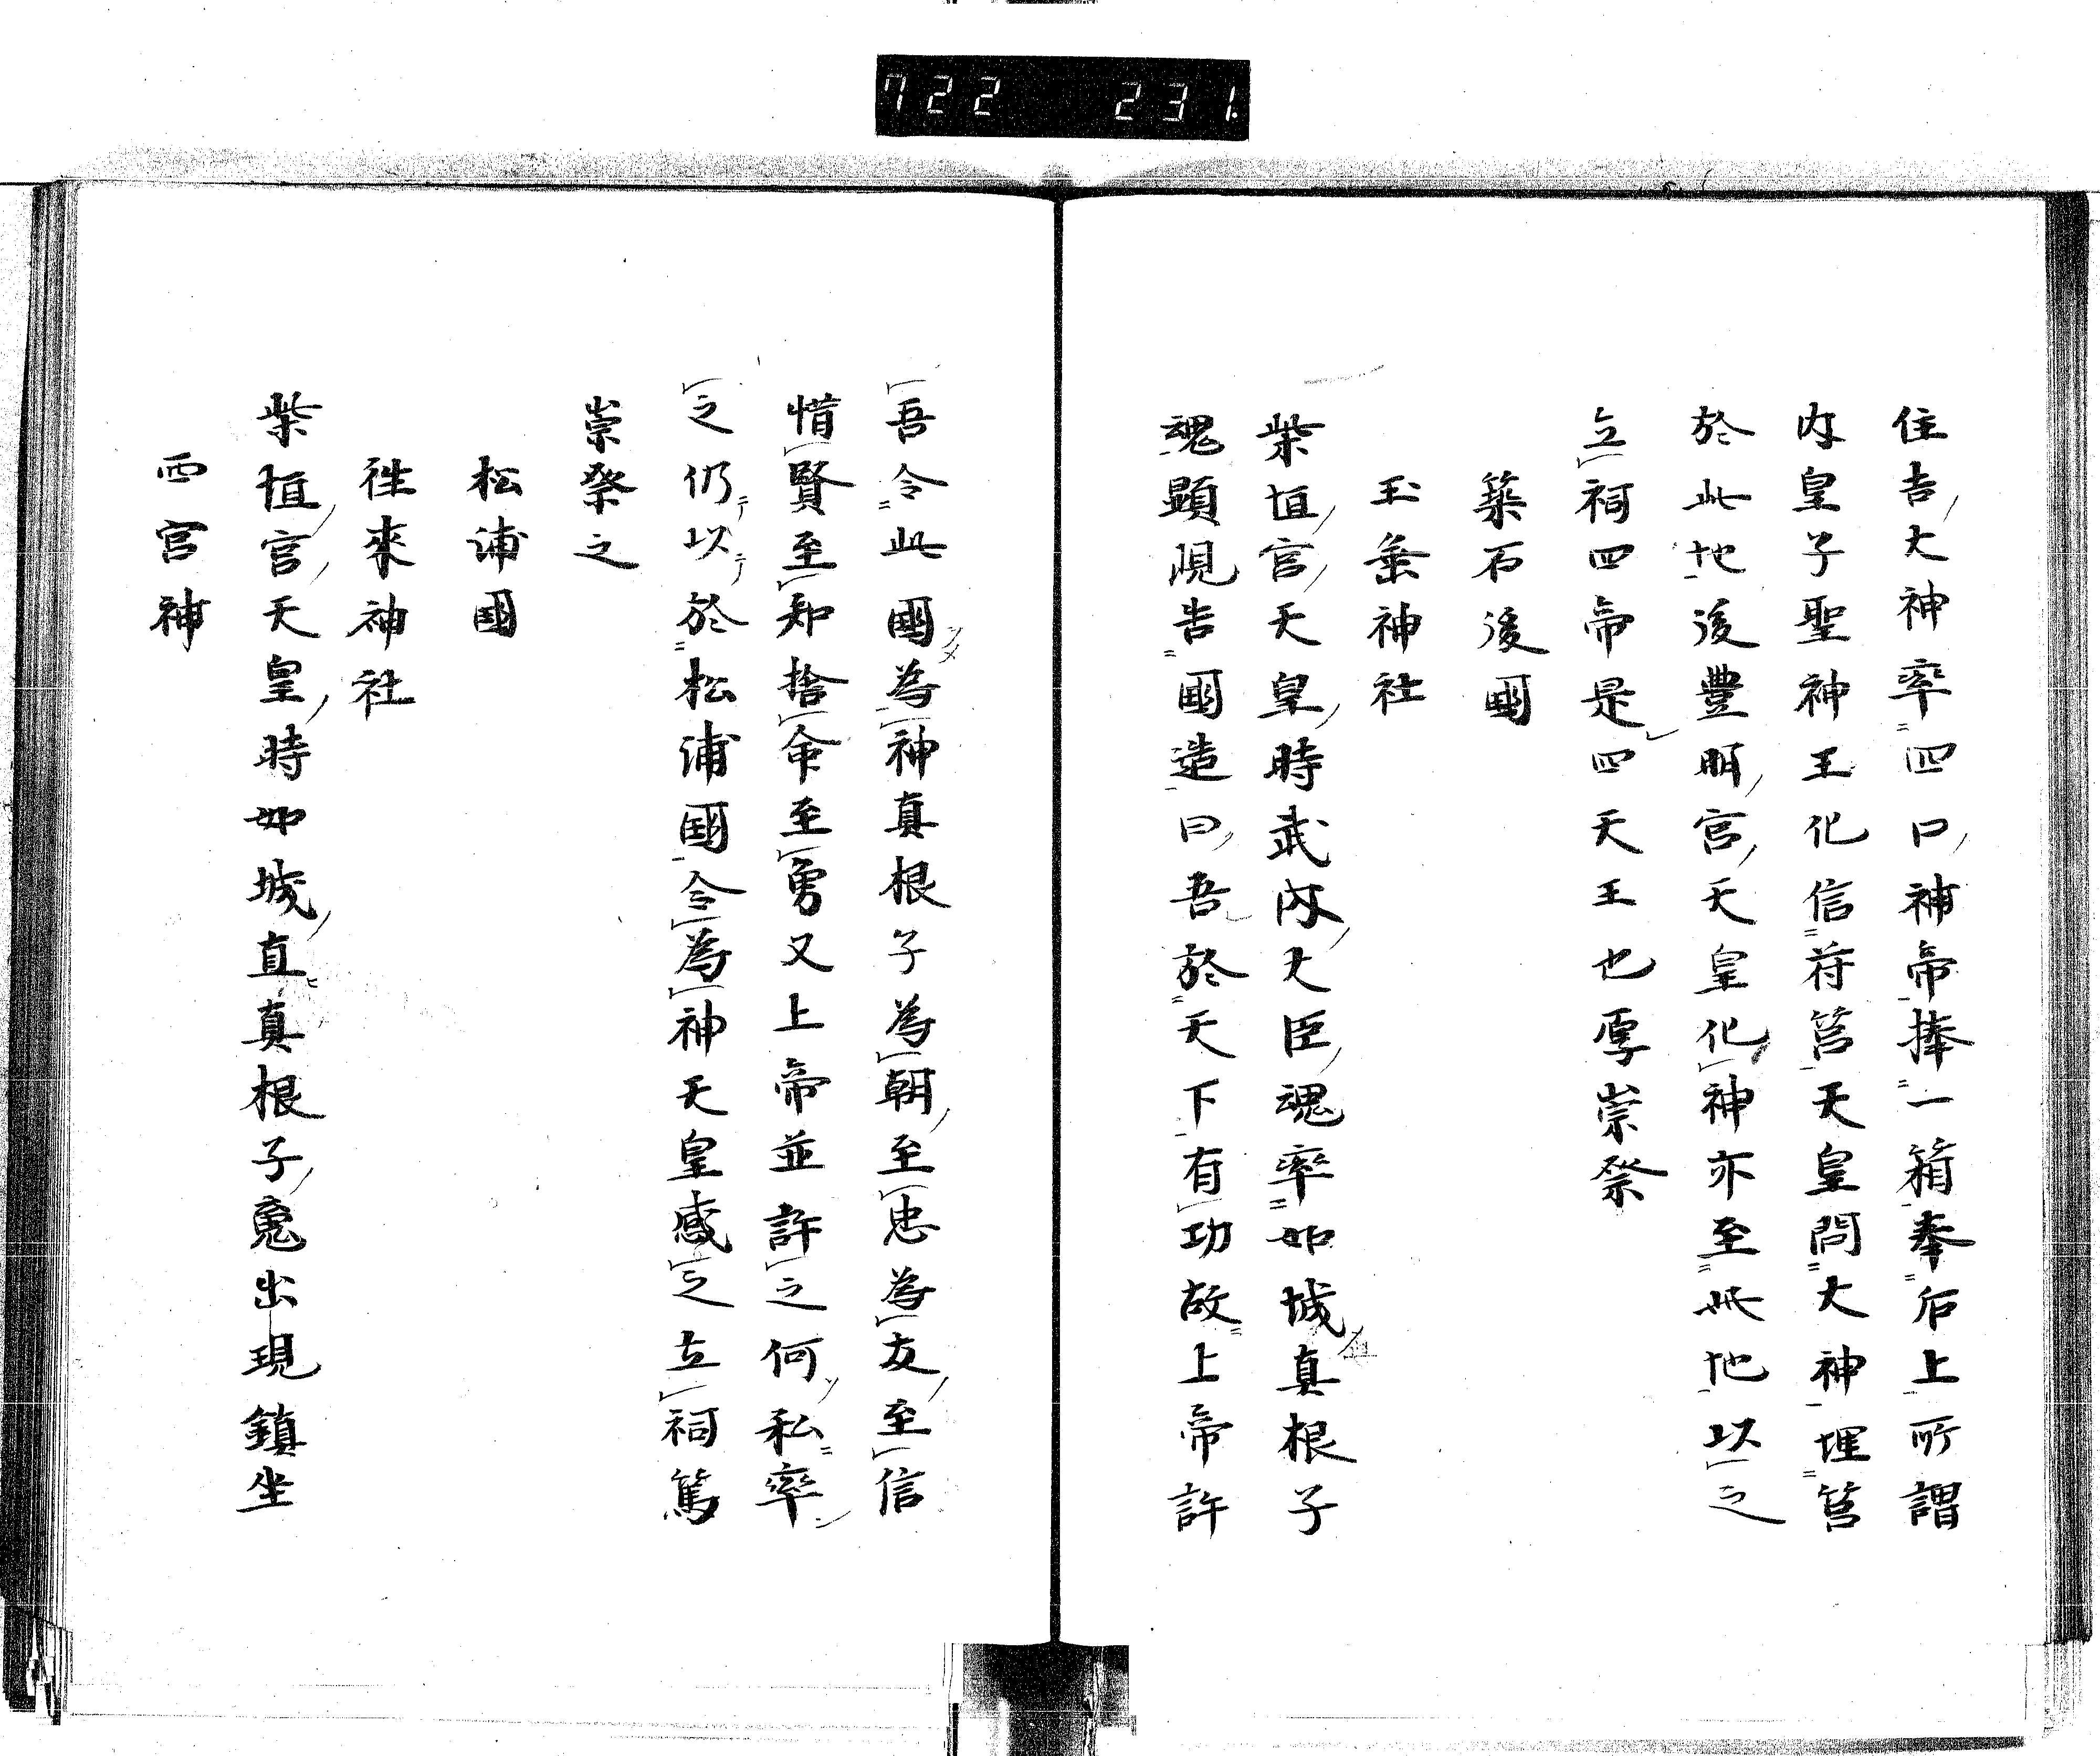 722 231.
住吉大神率四口神帝捧一箱奉石上所謂
内皇子聖神王化信苻筥天皇問大神埋筥
於此地後豐明宮天皇化神亦至此地以之
立祠四帝是四天王也厚崇祭
築石後國
玉垂神社
柴垣宮天皇時武内大臣魂率如城真根子
魂顕現告國造曰吾於天下有功故上帝許
吾令此國為神真根子為朝至忠為友至信
惜賢至知捨命至勇又上帝並許之何私率
之仍以於松浦國令為神天皇感之立祠篤
崇祭之
松浦國
徃來神社
柴垣宮天皇時如城直真根子魂出現鎮坐
西宮神